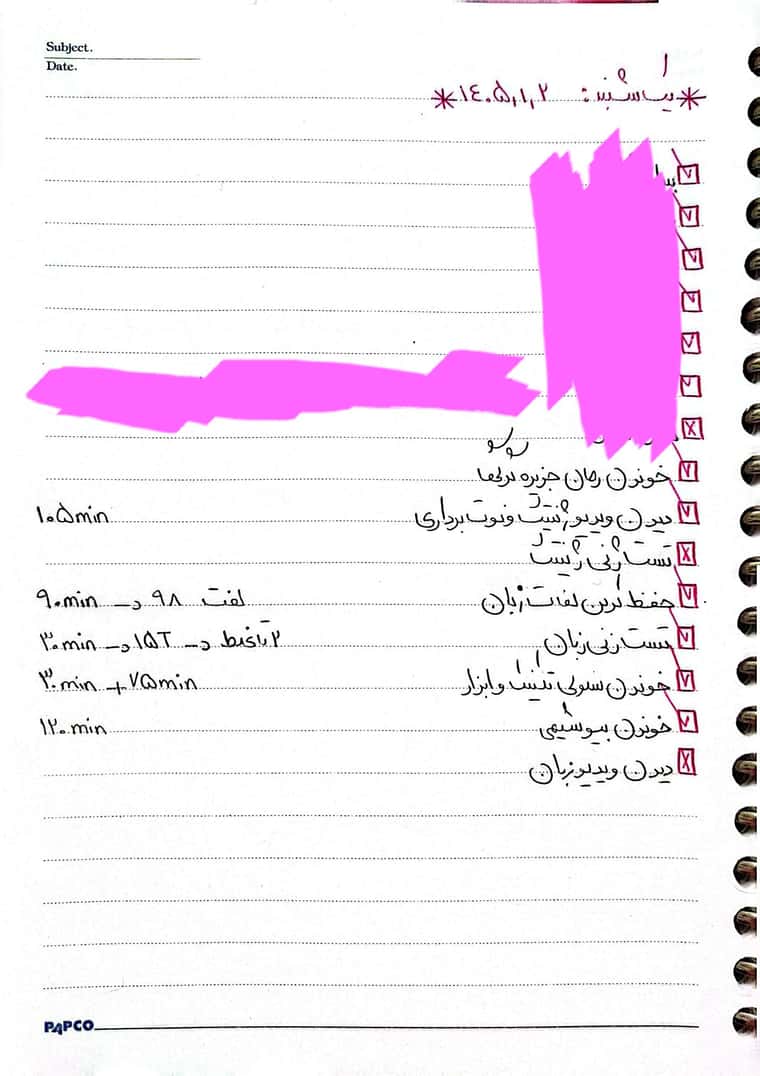 Subject.
Date.
* یک شنبه: ۱۴۰۵,۱,۲ *
خوندن رمان جزیره
دیدن ویدیو ژنتیک و نوت برداری ۱۰۵min
تست زنی ژنتیک
حفظ کردن لغات زبان لغت ۹۸ → ۹۰min
تست زنی زبان ۲ تا غلط → ۱۵T → ۳۰min
خوندن سلولی تکنیک و ابزار ۷۵min + ۳۰min
خوندن بیوشیمی ۱۲۰min
دیدن ویدیو زبان
PAPCO